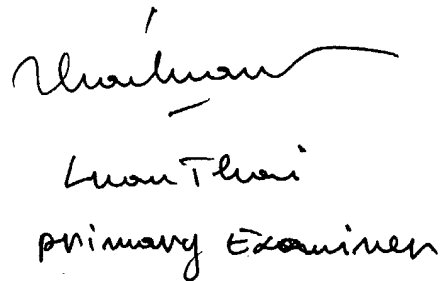 Luan Thai
Primary Examiner